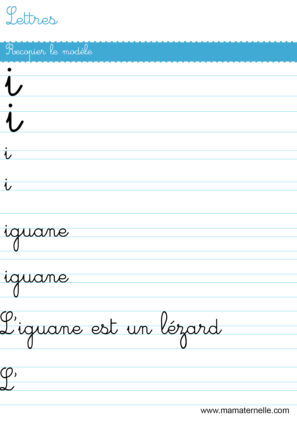 Lettres
Recopier le modèle
i
i
i
i
iguane
iguane
L'iguane est un lézard
L'
www.mamaternelle.com